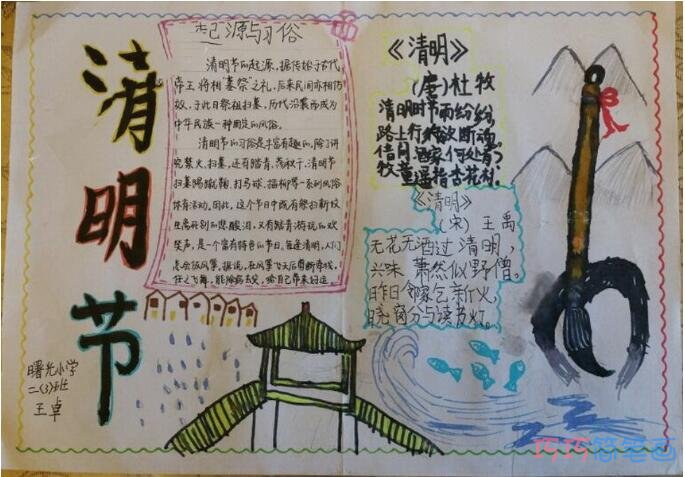 清明节
曙光小学
二(3)班
王卓
起源与习俗
清明节的起源，据传始于古代
帝王将相“墓祭”之礼，后来民间亦相仿
效，于此日祭祖扫墓，历代沿袭而成为
中华民族一种固定的风俗。
清明节的习俗是丰富有趣的，除了讲
究禁火、扫墓，还有踏青、荡秋千、清明节
扫墓蹴鞠、打马球、插柳等一系列风俗
体育活动。因此，这个节日中既有祭扫新坟
生离死别的悲酸泪，又有踏青游玩的欢
笑声，是一个富有特色的节日。每逢清明，人们
总会放风筝。据说，在风筝飞天后剪断牵线，
任之飞舞，能除病去灾，给自己带来好运。
《清明》
(唐)杜牧
清明时节雨纷纷，
路上行人欲断魂。
借问酒家何处有？
牧童遥指杏花村。
《清明》
(宋)王禹
无花无酒过清明，
兴味萧然似野僧。
昨日邻家乞新火，
晓窗分与读书灯。
巧巧简笔画